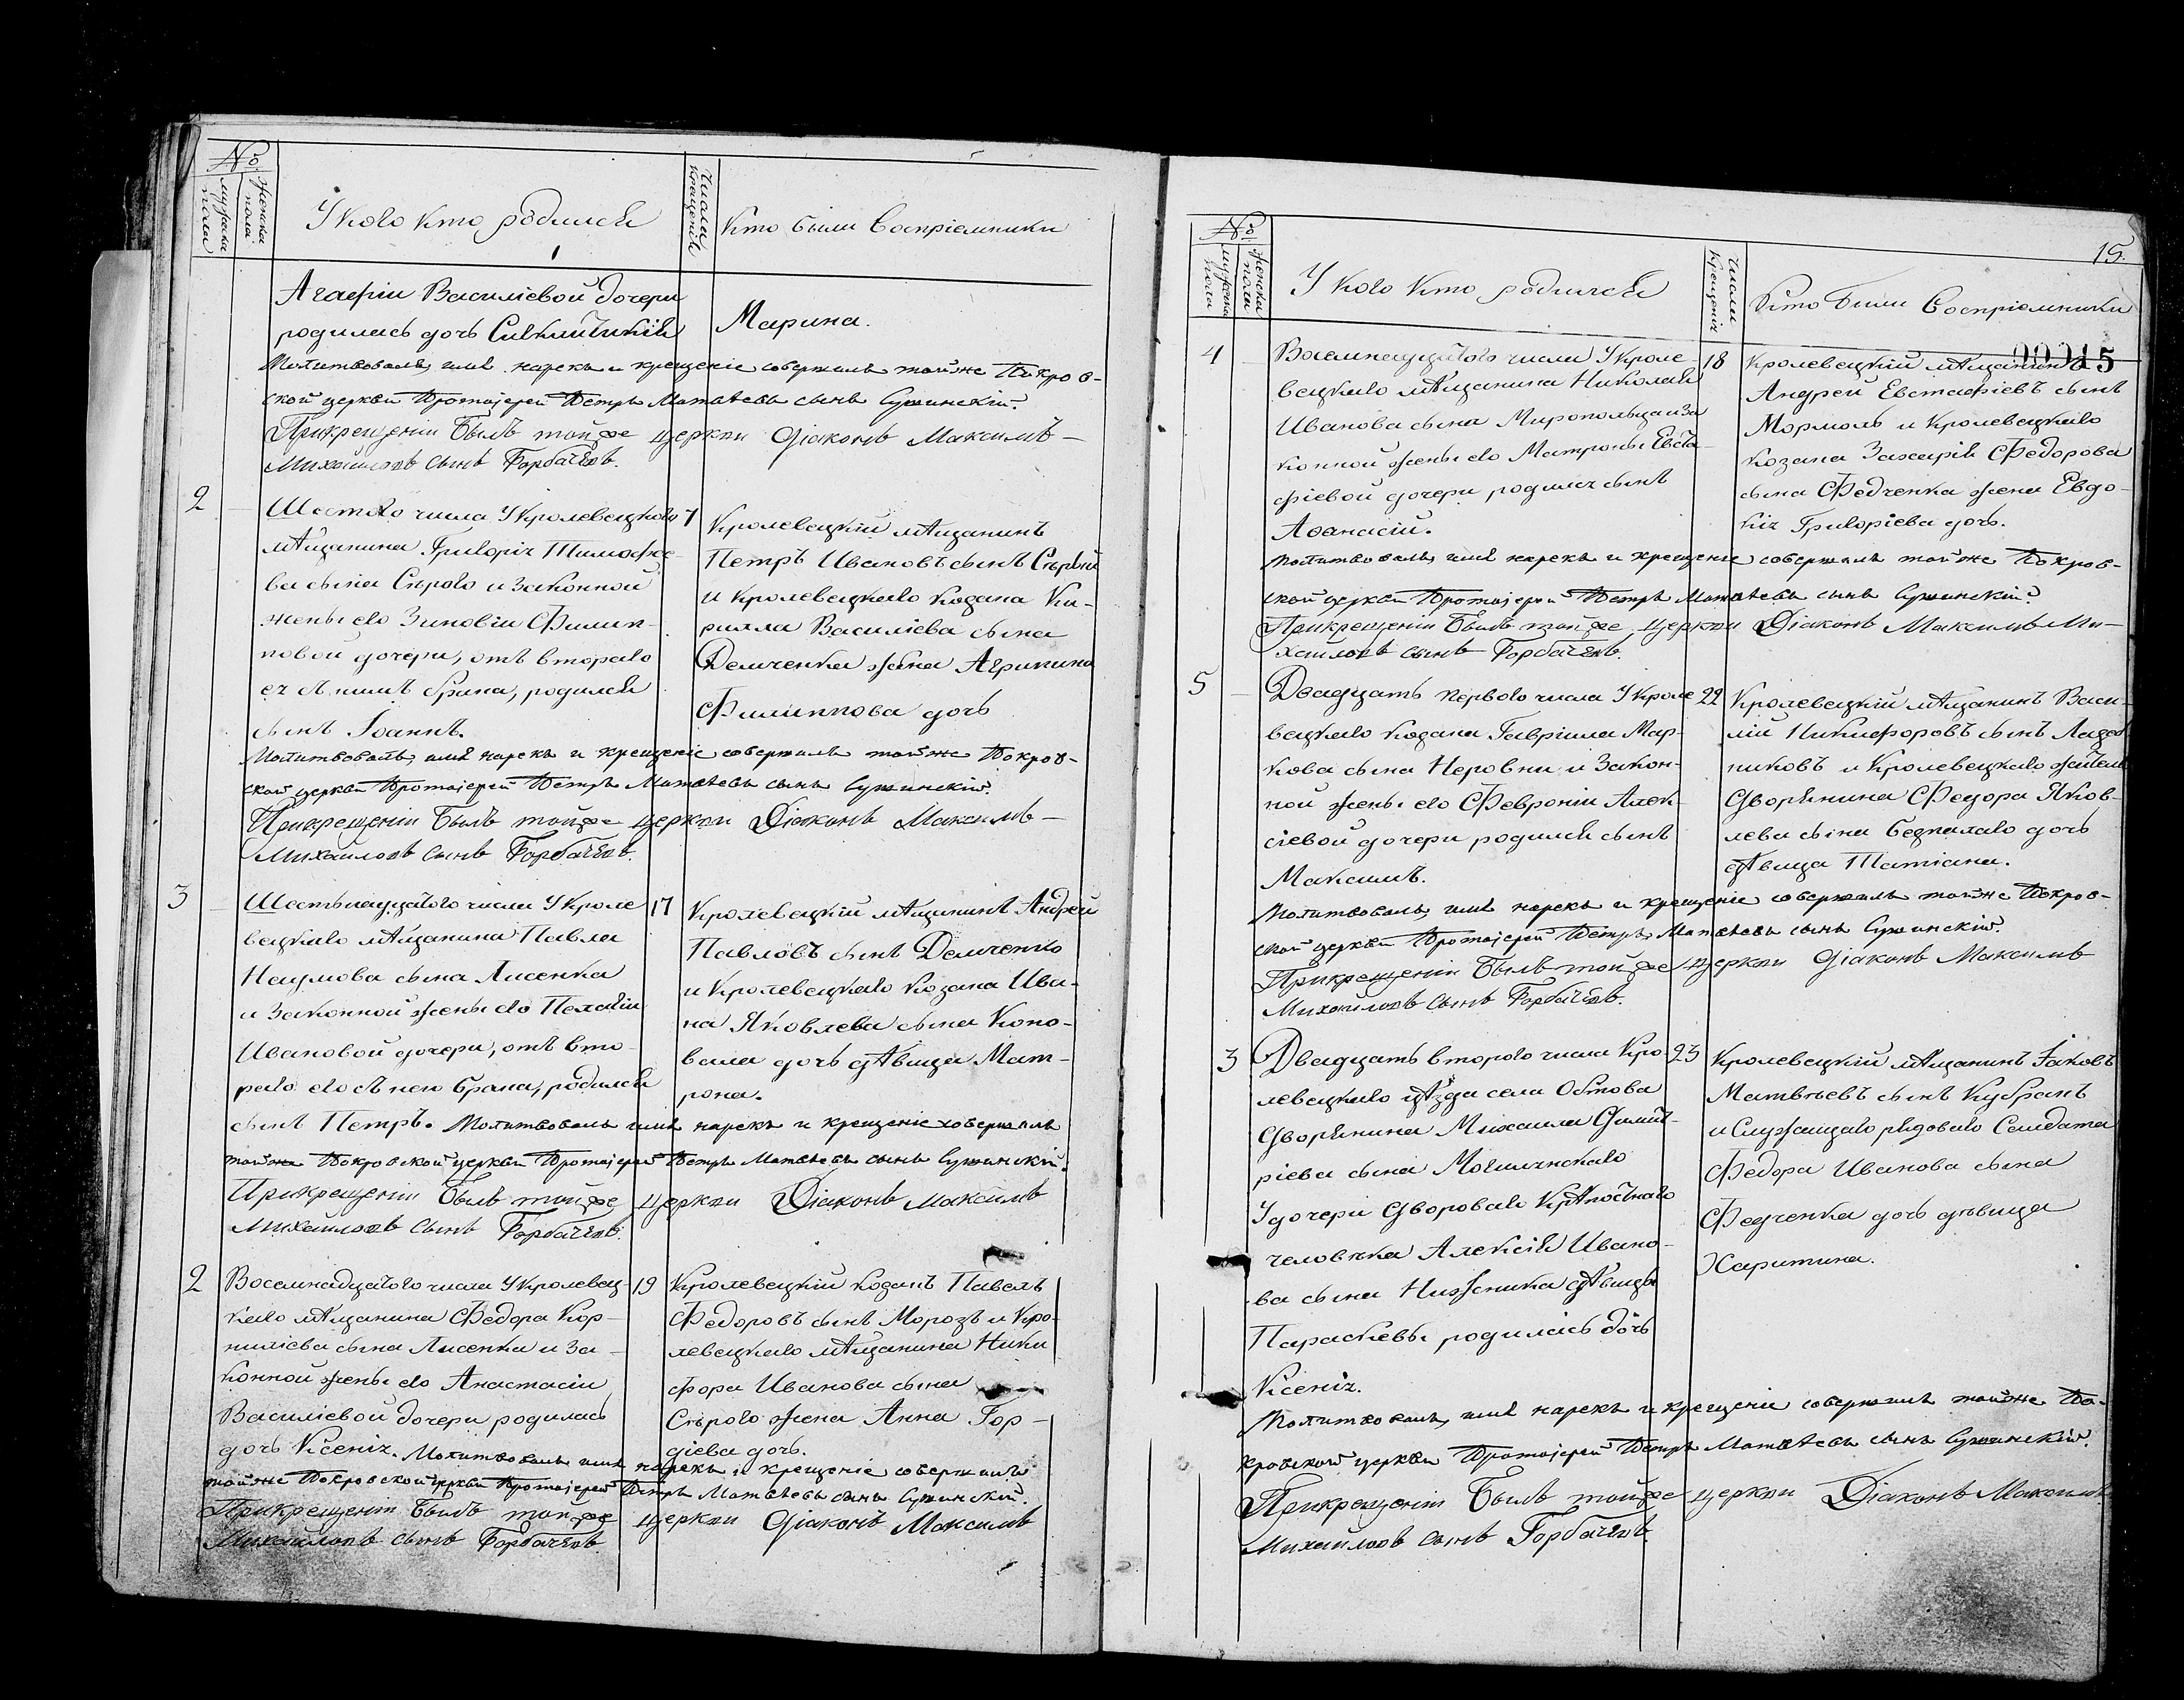 №
мужеска пола
женска пола
У кого кто родился
Числа крещенія
Кто были Воспріемники
Агафіи Василіевой дочери
родилась дочь Сикклитикія
Марина.
Молитвовалъ, имя нарекъ и крещеніе совершилъ той же Покров-
ской церкви Протоіерей Петръ Матвѣевъ сынъ Сушинскій.
При крещеніи былъ той же церкви Діаконъ Максимъ
Михайловъ сынъ Горбачевъ.
2
Шестого числа У Кролевецкого 7
мѣщанина Григорія Тимофѣе
ва сына Сѣрого и Законной
жены его Зиновіи Филип-
повой дочери, отъ втораго
ея съ нимъ брака, родился
сынъ Іоаннъ.
Кролевецкій мѣщанинъ
Петръ Ивановъ сынъ Сѣрый
и Кролевецкаго козака Ки-
рилла Василіева сына
Демченка жена Агрипина
Филиппова дочь
Молитвовалъ, имя нарекъ и крещеніе совершилъ той же Покров-
ской церкви Протоіерей Петръ Матвѣевъ сынъ Сушинскій.
При крещеніи былъ той же церкви Діаконъ Максимъ
Михайловъ сынъ Горбачевъ.
3
Шестьнадцатого числа У Кроле 17
вецкаго мѣщанина Павла
Наумова сына Лисенка
и Законной жены его Пелагіи
Ивановой дочери, отъ вто-
раго его съ нею брака, родился
сынъ Петръ. Молитвовалъ имя нарекъ и крещеніе совершилъ
Кролевецкій мѣщанинъ Андрей
Павловъ сынъ Демченко
и Кролевецкаго Козака Ива-
на Яковлева сына Коно-
вала дочь дѣвица Мат-
рона.
той же Покровской церкви Протоіерей Петръ Матвѣевъ сынъ Сушинскій.
При крещеніи былъ той же церкви Діаконъ Максимъ
Михайловъ сынъ Горбачевъ.
2
Восемнадцатого числа У Кролевец- 19
каго мѣщанина Федора Кор-
ниліева сына Лисенка и За-
конной жены его Анастасіи
Василіевой дочери родилась
дочь Ксенія. Молитвовалъ имя нарекъ и крещеніе совершилъ
Кролевецкій козакъ Павелъ
Федоровъ сынъ Морозъ и Кро-
левецкаго мѣщанина Ники
фора Иванова сына
Сѣрого жена Анна Гор-
діева дочь.
той же Покровской церкви Протоіерей Петръ Матвѣевъ сынъ Сушинскій.
При крещеніи былъ той же церкви Діаконъ Максимъ
Михайловъ сынъ Горбачевъ.
15.
№
мужеска пола
женска пола
У кого кто родился
Числа крещенія
Кто были Воспріемники
00015
4
Восемнадцатого числа У Кроле- 18
вецкаго мѣщанина Николая
Иванова сына Миропольца и За
конной жены его Матроны Евста-
фіевой дочери родился сынъ
Аѳанасій.
Кролевецкій мѣщанинъ
Андрей Евстафіевъ сынъ
Мормоль и Кролевецкаго
козака Захарія Федорова
сына Федченка жена Евдо-
кія Григоріева дочь.
Молитвовалъ, имя нарекъ и крещеніе совершилъ той же Покров-
ской церкви Протоіерей Петръ Матвѣевъ сынъ Сушинскій.
При крещеніи былъ той же церкви Діаконъ Максимъ Ми-
хайловъ сынъ Горбачевъ.
5
Двадцать первого числа У Кроле 22
вецкаго козака Гавріила Мар-
кова сына Неровни и Закон-
ной жены его Февроніи Алек-
сіевой дочери родился сынъ
Максимъ.
Кролевецкій мѣщанинъ Васи-
лій Никифоровъ сынъ
никовъ и Кролевецкаго жителя
Дворянина Федора Яков-
лева сына Беднаго дочь
дѣвица Татіана.
Молитвовалъ, имя нарекъ и крещеніе совершилъ той же Покров-
ской церкви Протоіерей Петръ Матвѣевъ сынъ Сушинскій.
При крещеніи былъ той же церкви Діаконъ Максимъ
Михайловъ сынъ Горбачевъ.
3
Двадцать второго числа Кро- 23
левецкаго уѣзда села Обтова
Дворянина Михаила Димит-
ріева сына
У дочери дворовалъ крѣпостнаго
человѣка Алексія Ивано-
ва сына дѣвицы
Параскевы родилась дочь
Ксенія.
Кролевецкій мѣщанинъ Іаковъ
Матвѣевъ сынъ Кубракъ
и Служащаго рядоваго Салдата
Федора Иванова сына
Федченка дочь дѣвица
Харитина.
Молитвовалъ, имя нарекъ и крещеніе совершилъ той же По-
кровской церкви Протоіерей Петръ Матвѣевъ сынъ Сушинскій.
При крещеніи былъ той же церкви Діаконъ Максимъ
Михайловъ сынъ Горбачевъ.